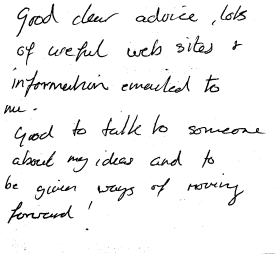 Good clear advice, lots
of useful web sites &
information emailed to
me.
Good to talk to someone
about my ideas and to
be given ways of moving
forward!